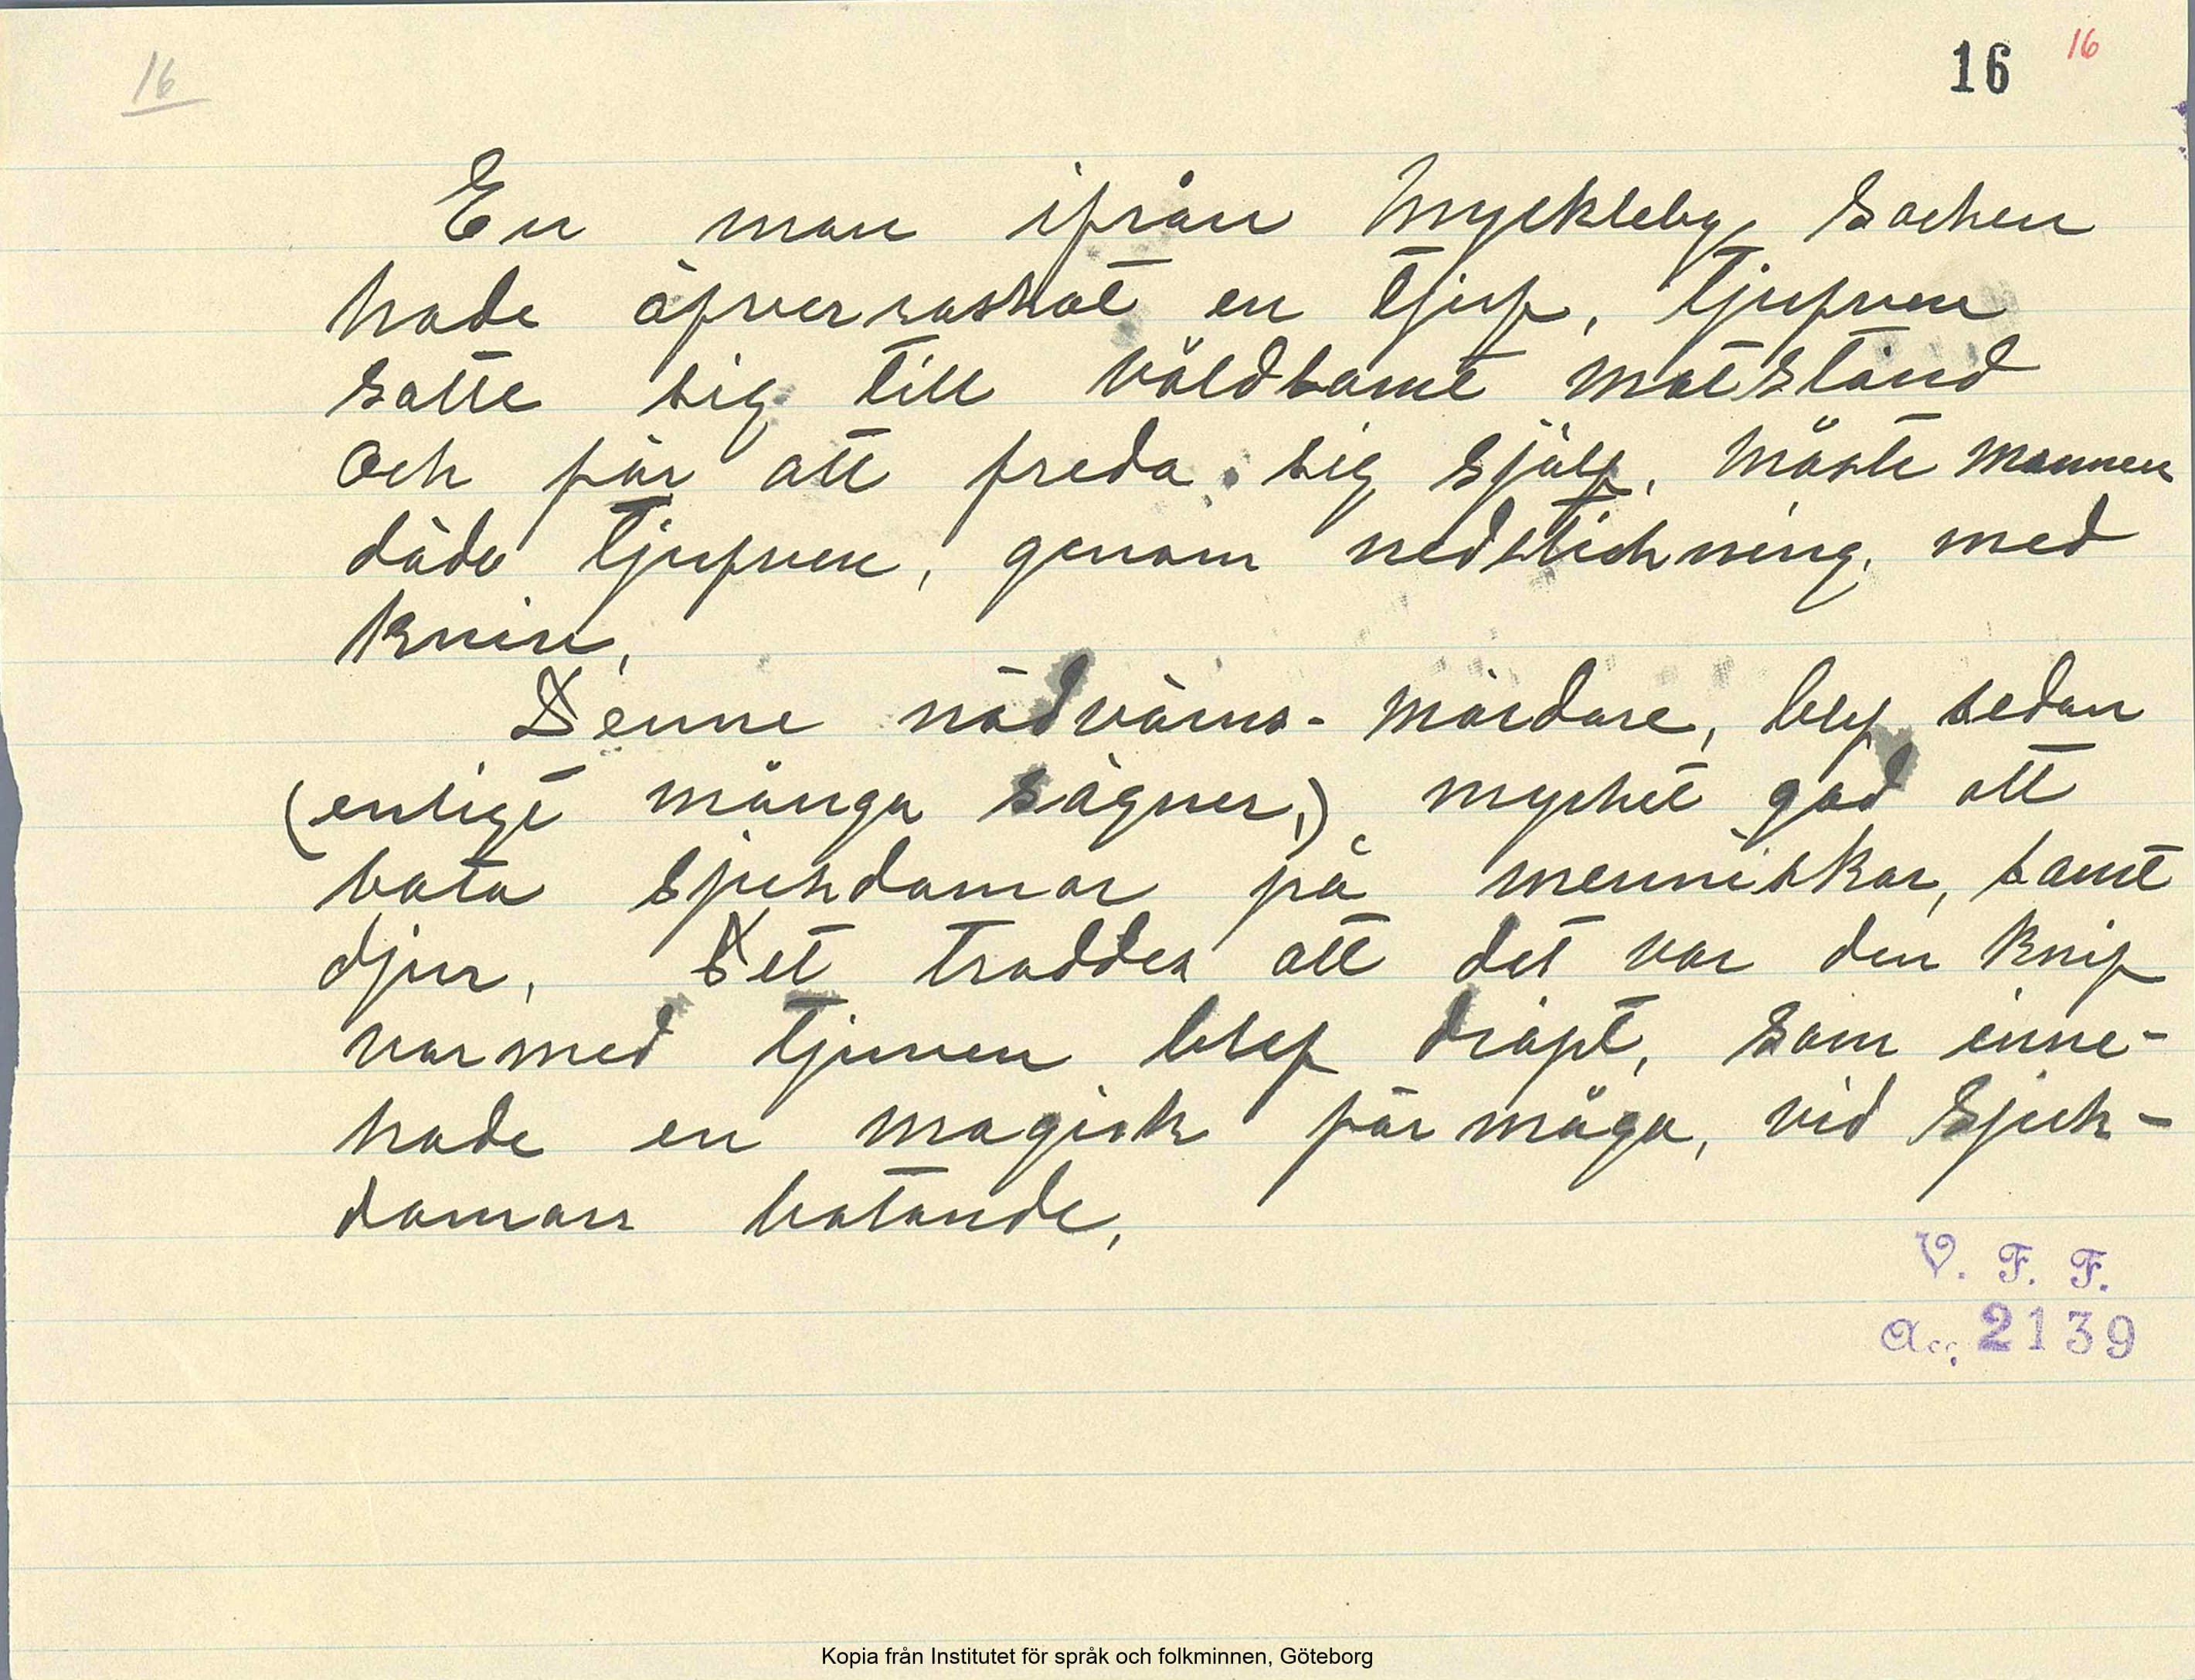 16
16 16
En man ifrån Myckleby Socken
hade öfverraskat en tjuf, tjufven
satte sig till våldsamt motstånd
och för att freda sig själf, måste mannen
döda tjufven, genom nedstickning med
kniv,
Denne nödvärns-mördare, blef sedan
(enligt många sägner,) mycket god att
bota sjukdomar på menniskor, samt
djur, Det troddes att det var den knif
varmed tjuven blef dräpt, som inne-
hade en magisk förmåga, vid sjuk-
domars botande,
V. F. F.
Acc. 2139
Kopia från Institutet för språk och folkminnen, Göteborg